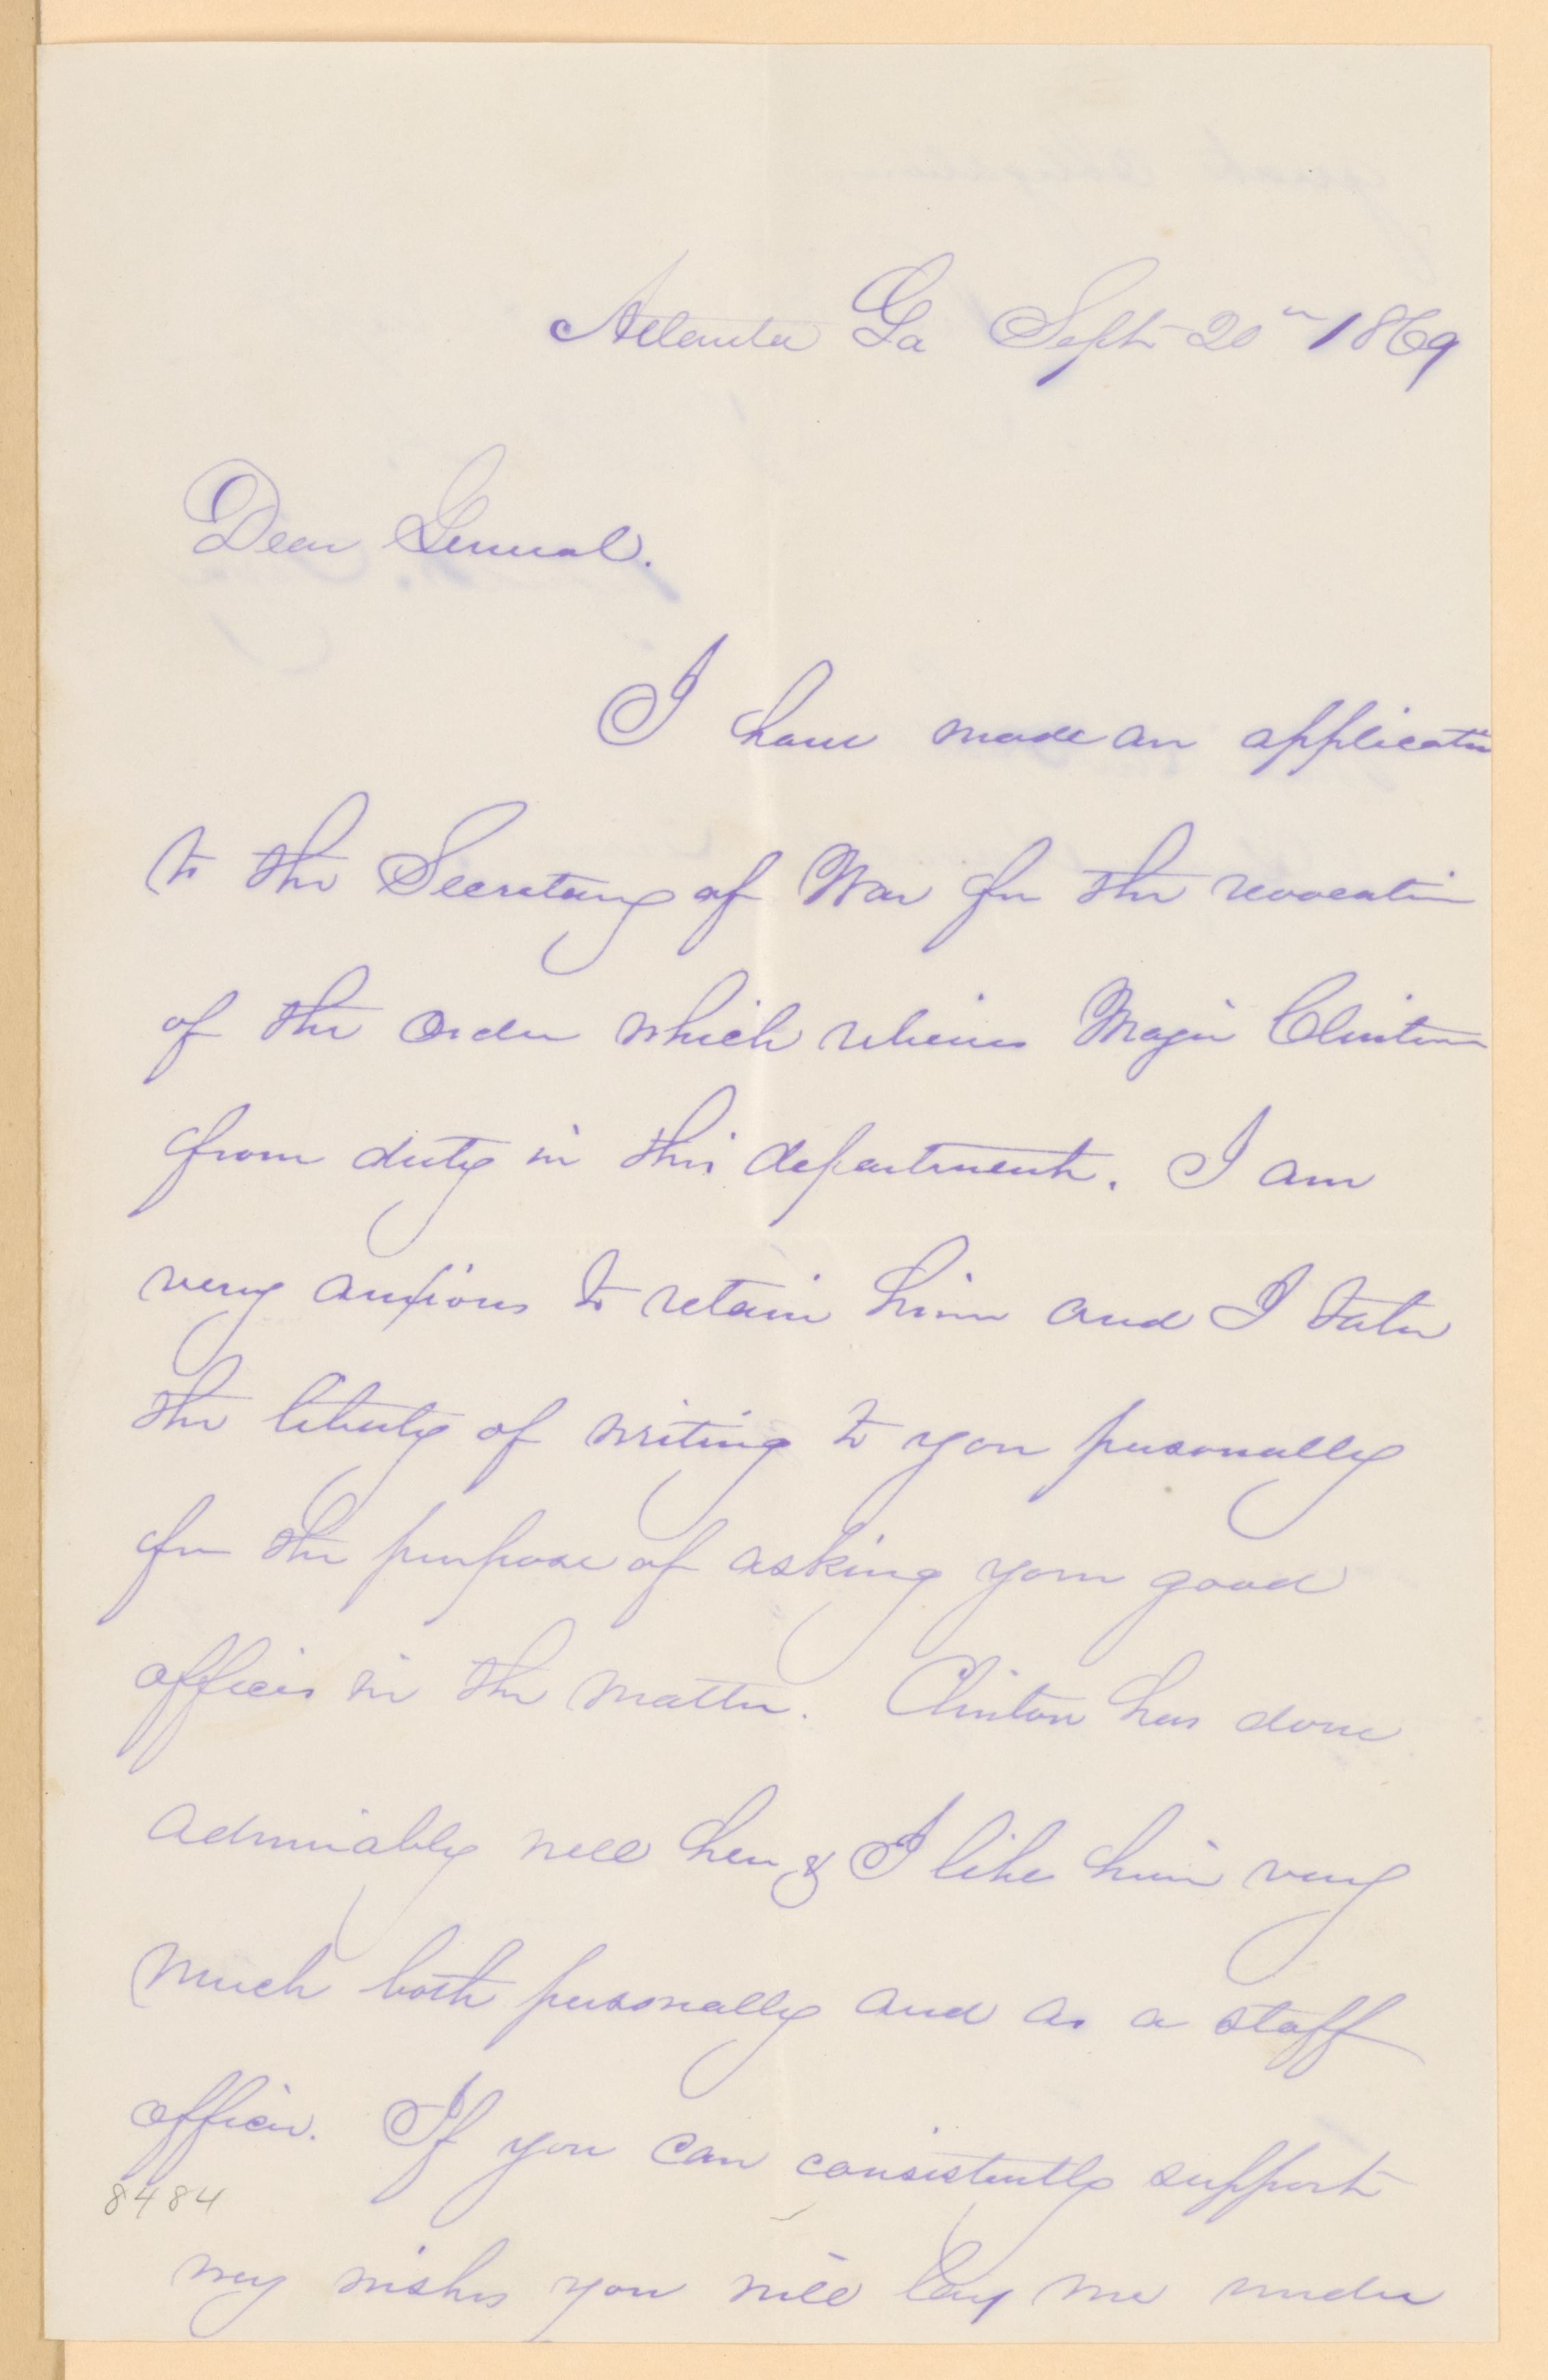 Atlanta Ga Sept 20" 1869
Dear General.
I have made an application
to the Secretary of War for the revocation
of the order which relieves Major Clinton
from duty in this department. I am
very anxious to retain him and I take
the liberty of writing to you personally
for the purpose of asking your good
offices in the matter. Clinton has done
admirably well here & I like him very
much both personally and as a staff
officer. If you can consistently support
8484
my wishes you will lay me under